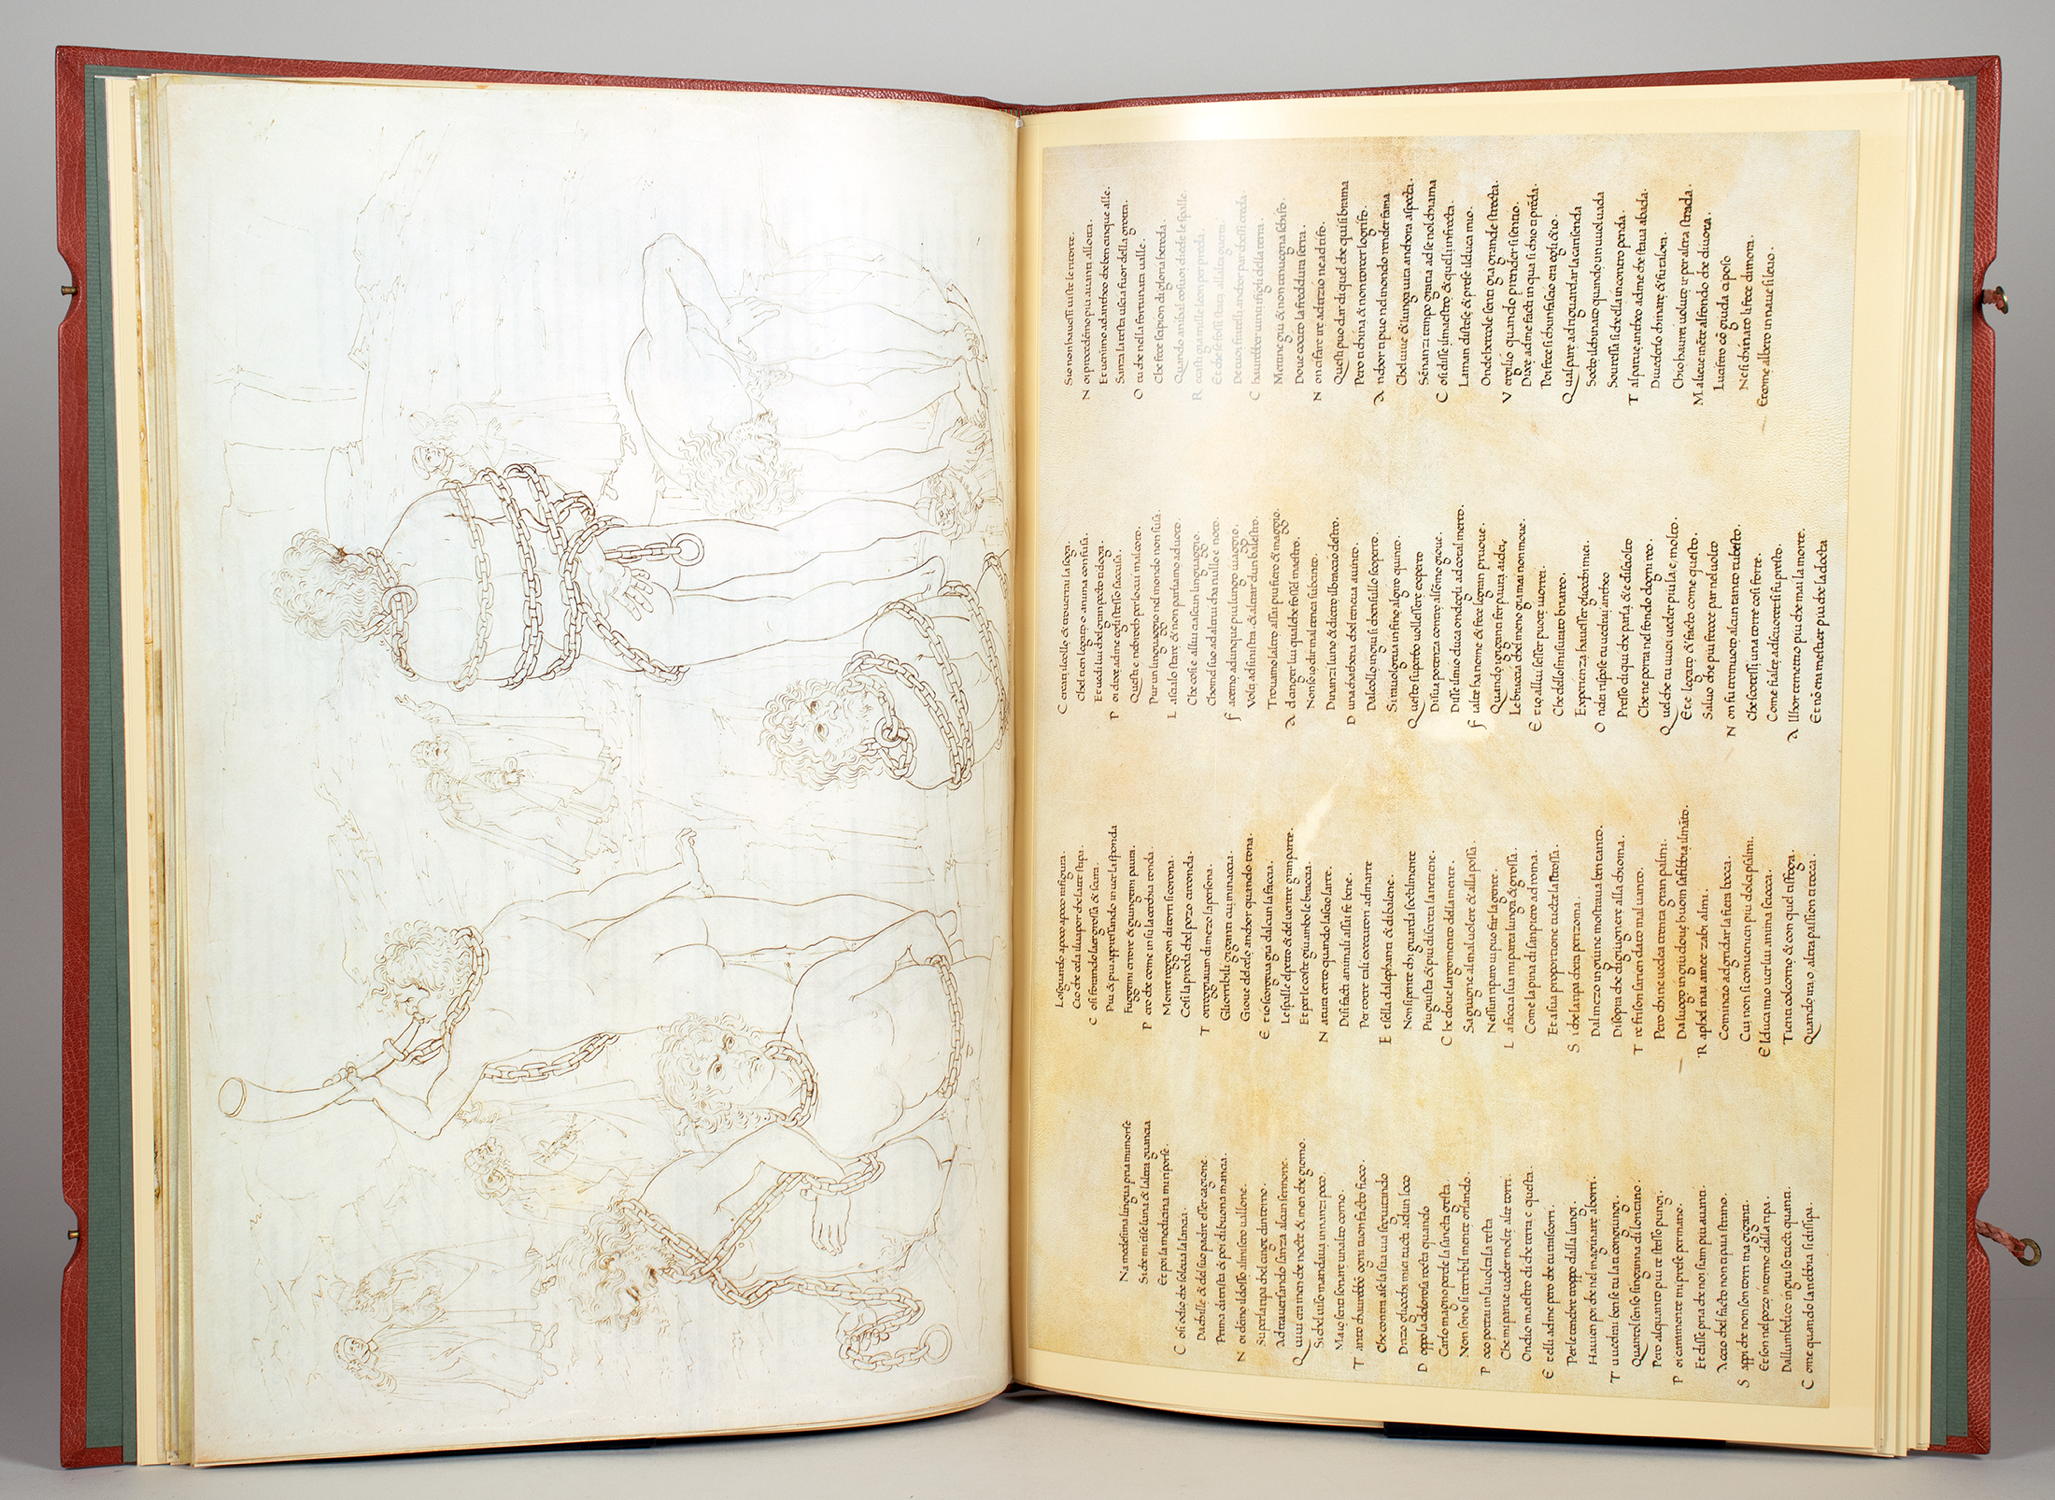 Na medesima lingua pria mimorse
Si che mi tise luna & laltra guancia
Et poi la medicina mi riporse.
Cosi odio che soleua la lancia.
Dachille & del suo padre esser cagione.
Prima di trista & poi di buona mancia.
Noi demo il dosso almisero uallone.
Su per la ripa chel cinge dintorno.
Adtrauersando sanza alcun sermone.
Quiui era men che nocte & men che giorno.
Si chel uiso mandaua innanzi poco.
Ma io senti sonare un alto corno.
Tanto chaurebbe ogni tuon facto fioco.
Che contra se la sua uia seguitando
Drizo gliocchi miei tucti ad un loco
Doppo la dolorosa rocta quando
Carlo magno perde la sancta gesta.
Non sono si terribil mente orlando.
Poco portai in la uolta la testa
Che mi parue ueder molte alte torri.
Ondio maestro di che terra e questa.
Et elli ad me pero che tu trascorri.
Per le tenebre troppo dalla lungi.
Hauien poi che nel maginare aborri.
Tu uedrai ben se tu la ti congiungi.
Quantol senso singanna di lontano.
Pero alquanto piu te stesso pungi.
Poi caramente mi prese per mano.
Et disse pria che noi siam piu auanti.
Accio chel facto non ti paia strano.
Sappi che non son torri ma giganti.
Et son nel pozo intorno dalla ripa.
Dallumbelico in giuso tucti quanti.
Come quando la nebbia si dissipa.
Lo sguardo apoco apoco raffigura.
Cio che cela iluapor che laere stipa.
Cosi forando laer grossa & scura.
Piu & piu appressando in uer la sponda
Fuggemi errore & giungemi paura.
Pero che come in su la cerchia tonda.
Montereggion di torri si corona.
Cosi la proda chel pozo circonda.
Torreggiauan di mezo la persona.
Gliorribili giganti cui minaccia.
Gioue del cielo anchor quando tona.
Et io scorgeua gia dalcun la faccia.
Le spalle el pecto & del uentre gran parte.
Et per le coste giu ambo le braccia.
Natura certo quando lascio larte.
Di si facti animali assai fe bene.
Per torre tali executori ad marte
Et sella dalephanti & di balene.
Non si pente chi guarda soctilmente
Piu giusta & piu discreta la ne tiene.
Che doue largomento della mente.
Saggiugne almal uolere & alla possa.
Nessun riparo ui puo far la gente.
La faccia sua mi parea lunga & grossa.
Come la pina di sampiero ad roma.
Et a sua proportione eran laltrossa.
Si che la ripa chera perizoma.
Dal mezo in giu ne mostraua ben tanto.
Di sopra che di giugnere alla chioma.
Tre frison sarien dato mal uanto.
Pero chi ne uedea trenta gran palmi.
Da luogo in giu doue huom saffibbia ilmanto.
Raphel mai amec zabi almi.
Comincio ad gridar la fiera bocca.
Cui non si conuenien piu dolci psalmi.
El duca mio uer lui anima sciocca.
Tienti col corno, & con quel ti sfoga.
Quando ira, o altra passion ti tocca.
Cercati alcollo & trouerai la soga.
Chel tien legato o anima confusa.
Et uedi lui chelgran pecto ti doga.
Poi dixe ad me egli stesso saccusa.
Questi e nebroth per lo cui mal coto.
Pur un linguaggio nel mondo non susa.
Lasciallo stare & non parliamo aduoto.
Che cosi e allui ciascun linguaggio.
Chomel suo adaltrui cha nullo e noto.
Facemo adunque piu lungo uiaggio.
Volti ad sinistra & altrar dun balestro.
Trouamo laltro assai piu fiero & maggio.
Ad cinger lui qual che fossel maestro.
Non so io dir ma tenea succinto.
Dinanzi luno & dietro ilbraccio destro.
Duna chathena chel teneua auinto.
Dalcollo ingiu si chensullo scoperto.
Si riuolgeua infino algiro quinto.
Questo superbo uollessere experto
Di sua potenza contro alsommo gioue.
Disse ilmio duca ondegli ad cotal merto.
Fialte ha nome & fece legran pruoue.
Quando i giganti fer paura aidei,
Le braccia chel meno giamai non moue.
Et io allui sesser puote uorrei.
Che dello smisurato briareo.
Experienza hauesser gliocchi miei.
Ondei rispose tu uedrai antheo
Presso di qui che parla & e disciolto
Che ne porra nel fondo dogni reo.
Quel che tu uuoi ueder piu la e molto.
Et e legato & facto come questo.
Saluo che piu feroce par nel uolto
Non fu tremuoto alcun tanto rubesto.
Che scotessi una torre cosi forte.
Come fialte ad scuotersi fu presto.
Allhor temetti piu che mai la morte.
Et non era mestier piu che la docta
Sio non hauessi uiste le ritorte.
Noi procedemo piu auanti allotta.
Et uenimo ad antheo che ben cinque alle.
Sanza la testa uscia fuor della grotta.
O tu che nella fortunata ualle.
Che fece scipion di gloria hereda.
Quando anibal cosuoi diede le spalle.
Recasti gia mille leon per preda.
Et che se fossi stato allalta guerra.
De tuoi fratelli anchor par chessi creda
Chaurebber uinto ifigli della terra.
Mettine giu & non ten uegna schifo.
Doue cocito la freddura serra.
Non ci fare ire ad titio ne ad tifo.
Questi puo dar di quel che qui si brama
Pero ti china & non torcer logrifo.
Anchor ti puo nel mondo render fama
Chel uiue & lunga uita anchora aspecta.
Sennanzi tempo gratia ad se nol chiama
Cosi disse ilmaestro & quelli infretta.
Le man distese & prese ilduca mio.
Ondehercole senti gia grande strecta.
Vergilio quando prender si sentio.
Dixe ad me facti in qua si chio ti prenda.
Poi fece si chunfascio era egli & io.
Qual pare ad riguardar la carisenda
Sotto ilchinato quando un nuuol uada
Souressa si chella incontro penda.
Tal parue antheo ad me che staua abada.
Di uederlo chinare & fu talora.
Chio haurei uoluto ir per altra strada.
Ma lieue mente alfondo che diuora.
Lucifero con giuda ci poso
Ne si chinato li fece dimora.
Et come albero in naue si leuo.